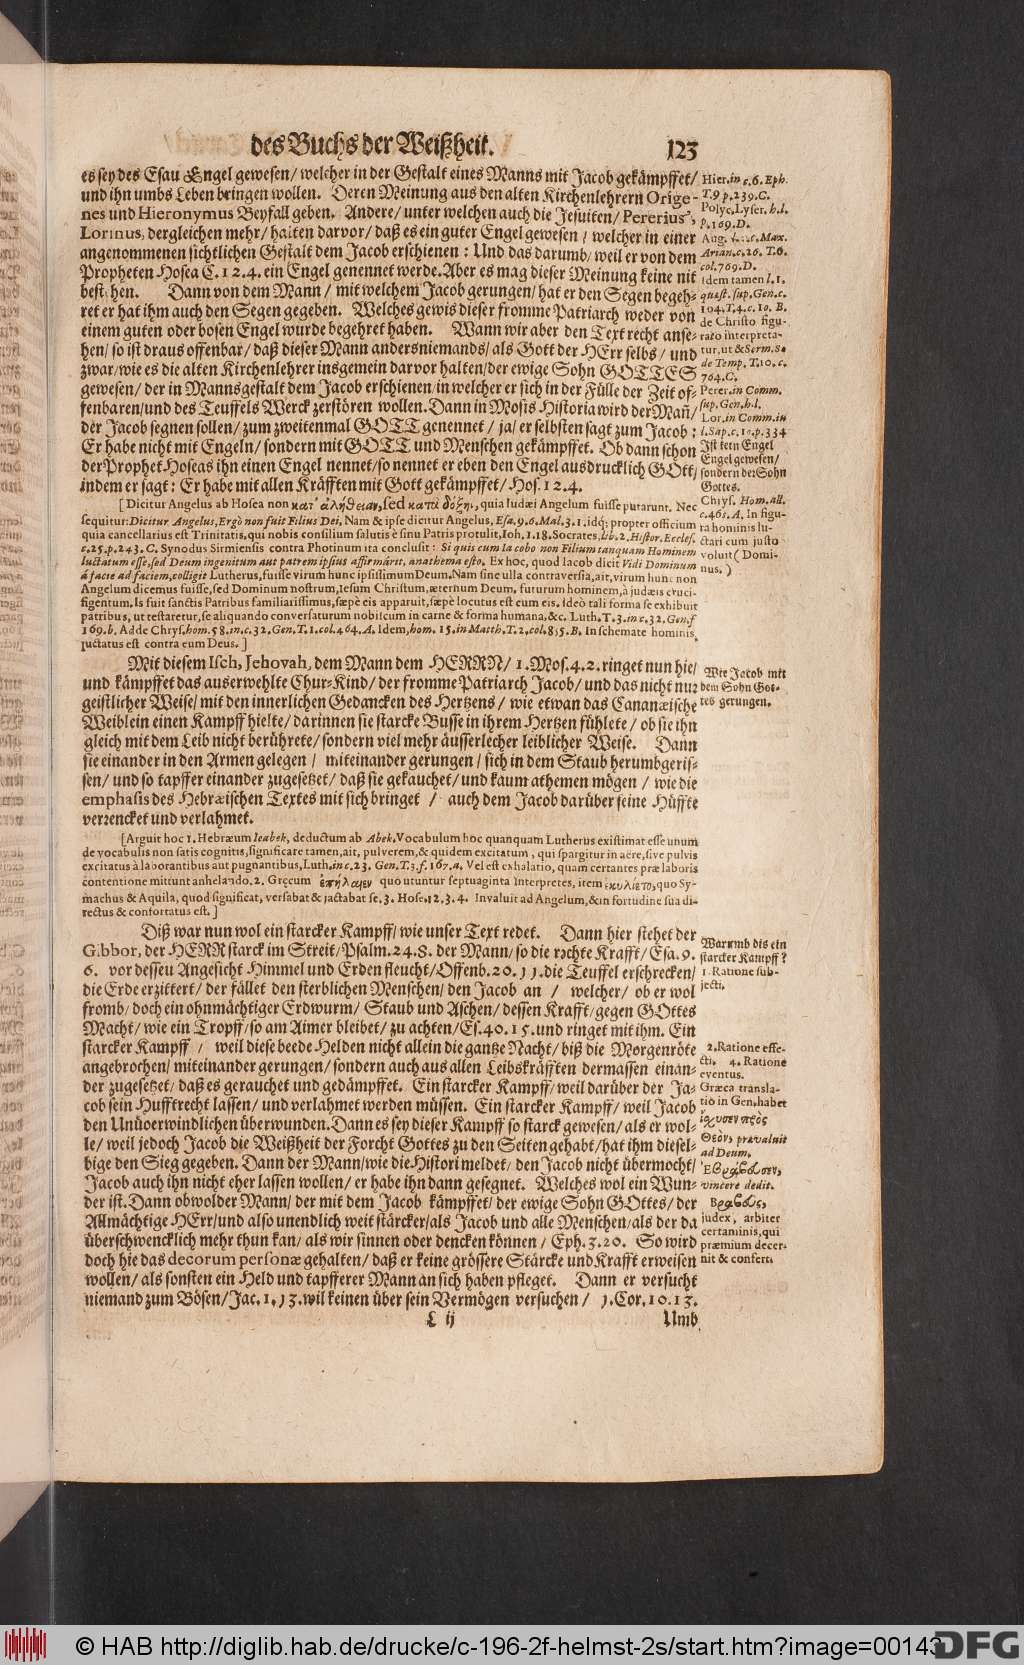 des Buchs der Weißheit. 123
es sey des Esau Engel gewesen/ welcher in der Gestalt eines Manns mit Jacob gekämpffet/
und ihn umbs Leben bringen wollen. Deren Meinung aus den alten Kirchenlehrern Orige-
nes und Hieronymus Beyfall geben. Andere/ unter welchen auch die Jesuiten/ Pererius,
Lorinus, dergleichen mehr/ halten darvor/ daß es ein guter Engel gewesen/ welcher in einer
angenommenen sichtlichen Gestalt dem Jacob erschienen: Und das darumb/ weil er von dem
Propheten Hosea C. 12. 4. ein Engel genennet werde. Aber es mag dieser Meinung keine nit
bestehen. Dann von dem Mann/ mit welchem Jacob gerungen/ hat er den Segen begeh-
ret er hat ihm auch den Segen gegeben. Welches gewis dieser fromme Patriarch weder von
einem guten oder bosen Engel wurde begehret haben. Wann wir aber den Text recht anse-
hen/ so ist draus offenbar/ daß dieser Mann anders niemands/ als Gott der HErr selbs/ und
zwar/ wie es die alten Kirchenlehrer insgemein darvor halten/ der ewige Sohn GOTTES
gewesen/ der in Mannsgestalt dem Jacob erschienen/ in welcher er sich in der Fülle der Zeit of-
fenbaren/ und des Teuffels Werck zerstören wollen. Dann in Mosis Historia wird der Mañ/
der Jacob segnen sollen/ zum zweitenmal GOTT genennet/ ja/ er selbsten sagt zum Jacob:
Er habe nicht mit Engeln/ sondern mit GOTT und Menschen gekämpffet. Ob dann schon
der Prophet Hoseas ihn einen Engel nennet/ so nennet er eben den Engel ausdrucklich GOtt/
indem er sagt: Er habe mit allen Kräfften mit Gott gekämpffet/ Hos. 12. 4.
[Dicitur Angelus ab Hosea non κατ' ἀλήθειαν, sed κατὰ δόξην, quia Iudæi Angelum fuisse putarunt. Nec
sequitur: Dicitur Angelus, Ergò non fuit Filius Dei, Nam & ipse dicitur Angelus, Esa. 9. 6. Mal. 3. 1. idq; propter officium
quia cancellarius est Trinitatis, qui nobis consilium salutis è sinu Patris protulit, Ioh. 1. 18. Socrates, lib. 2. Histor. Eccles.
c. 25. p. 243. C. Synodus Sirmiensis contra Photinum ita conclusit: Si quis cum Iacobo non Filium tanquam Hominem
luctatum esse, sed Deum ingenitum aut patrem ipsius affirmârit, anathema esto. Ex hoc, quod Iacob dicit Vidi Dominum
á facie ad faciem, colligit Lutherus, fuisse virum hunc ipsissimum Deum. Nam sine ulla contraversia, ait, virum hunc non
Angelum dicemus fuisse, sed Dominum nostrum, Iesum Christum, æternum Deum, futurum hominem, à judæis cruci-
figentum. Is fuit sanctis Patribus familiarissimus, sæpè eis apparuit, sæpè locutus est cum eis. Ideò tali forma se exhibuit
patribus, ut testaretur, se aliquando conversaturum nobiscum in carne & forma humana, &c. Luth. T. 3. in c. 32. Gen. f
169. b. Adde Chrys. hom. 58. in c. 32. Gen. T. 1. col. 464. A. Idem, hom. 15. in Matth. T. 2. col. 835. B. In schemate hominis
luctatus est contra eum Deus.]
Mit diesem Isch, Jehovah, dem Mann dem HERRN/ 1. Mos. 4. 2. ringet nun hie/
und kämpffet das auserwehlte Chur-Kind/ der fromme Patriarch Jacob/ und das nicht nur
geistlicher Weise/ mit den innerlichen Gedancken des Hertzens/ wie etwan das Cananæische
Weiblein einen Kampff hielte/ darinnen sie starcke Busse in ihrem Hertzen fühlete/ ob sie ihn
gleich mit dem Leib nicht berührete/ sondern viel mehr äusserlecher leiblicher Weise. Dann
sie einander in den Armen gelegen/ miteinander gerungen/ sich in dem Staub herumbgeris-
sen/ und so tapffer einander zugesetzet/ daß sie gekauchet/ und kaum athemen mögen/ wie die
emphasis des Hebræischen Textes mit sich bringet/ auch dem Jacob darüber seine Hüffte
verrencket und verlahmet.
[Arguit hoc 1. Hebræum Ieabek, deductum ab Abek. Vocabulum hoc quanquam Lutherus existimat esse unum
de vocabulis non satis cognitis, significare tamen, ait, pulverem, & quidem excitatum, qui spargitur in aëre, sive pulvis
excitatus à laborantibus aut pugnantibus, Luth. in c. 23. Gen. T. 3. f. 167. a. Vel est exhalatio, quam certantes præ laboris
contentione mittunt anhelando. 2. Græcum quo utuntur septuaginta Interpretes, item quo Sy-
machus & Aquila, quod significat, versabat & jactabat se. 3. Hose. 12. 3. 4. Invaluit ad Angelum, & in fortudine sua di-
rectus & confortatus est.]
Diß war nun wol ein starcker Kampff/ wie unser Text redet. Dann hier stehet der
Gibbor, der HERR starck im Streit/ Psalm. 24. 8. der Mann/ so die rechte Krafft/ Esa. 9.
6. vor dessen Angesicht Himmel und Erden fleucht/ Offenb. 20. 11. die Teuffel erschrecken/
die Erde erzittert/ der fället den sterblichen Menschen/ den Jacob an/ welcher/ ob er wol
fromb/ doch ein ohnmächtiger Erdwurm/ Staub und Aschen/ dessen Krafft/ gegen GOttes
Macht/ wie ein Tropff/ so am Aimer bleibet/ zu achten/ Es. 40. 15. und ringet mit ihm. Ein
starcker Kampff/ weil diese beede Helden nicht allein die gantze Nacht/ biß die Morgenröte
angebrochen/ miteinander gerungen/ sondern auch aus allen Leibskräfften dermassen einan-
der zugesetzet/ daß es gerauchet und gedämpffet. Ein starcker Kampff/ weil darüber der Ja-
cob sein Hufftrecht lassen/ und verlahmet werden müssen. Ein starcker Kampff/ weil Jacob
den Unüberwindlichen überwunden. Dann es sey dieser Kampff so starck gewesen/ als er wol-
le/ weil jedoch Jacob die Weißheit der Forcht Gottes zu den Seiten gehabt/ hat ihm diesel-
bige den Sieg gegeben. Dann der Mann/ wie die Histori meldet/ den Jacob nicht übermocht/
Jacob auch ihn nicht eher lassen wollen/ er habe ihn dann gesegnet. Welches wol ein Wun-
der ist. Dann obwol der Mann/ der mit dem Jacob kämpffet/ der ewige Sohn GOttes/ der
Allmächtige HErr/ und also unendlich weit stärcker/ als Jacob und alle Menschen/ als der da
überschwencklich mehr thun kan/ als wir sinnen oder dencken können/ Eph. 3. 20. So wird
doch hie das decorum personæ gehalten/ daß er keine grössere Stärcke und Krafft erweisen
wollen/ als sonsten ein Held und tapfferer Mann an sich haben pfleget. Dann er versucht
niemand zum Bösen/ Jac. 1, 13. wil keinen über sein Vermögen versuchen/ 1. Cor. 10. 13.
L ij Umb
Hier. in c. 6. Eph.
T. 9 p. 239. C.
Polyc. Lyser. h. l.
p. 169. D.
Aug. Max.
Arian. c. 26. T. 6.
col. 769. D.
Idem tamen l. 1.
quæst. sup. Gen. c.
104. T. 4. c. 10. B.
de Christo figu-
rato interpreta-
tur, ut & Serm. 80
de Temp. T. 10. c.
764. C.
Perer. in Comm.
sup. Gen. h. l.
Lor. in Comm. in
l. Sap. c. 10. p. 334
Ist kein Engel
Engel gewesen/
sondern der Sohn
Gottes.
Chrys. Hom. all.
c. 465. A. In figu-
ra hominis lu-
ctari cum justo
voluit (Domi-
nus.)
Wie Jacob mit
dem Sohn Got-
tes gerungen.
Warumb dis ein
starcker Kampff?
1. Ratione sub-
jecti.
2. Ratione effe-
cti. 4. Ratione
eventus.
Græca transla-
tio in Gen. habet
ἰσχυσεν πρὸς
Θεὸν, prævaluit
ad Deum.
vincere dedit.
Βραβεὺς,
judex, arbiter
certaminis, qui
præmium decer-
nit & confert.
© HAB http://diglib.hab.de/drucke/c-196-2f-helmst-2s/start.htm?image=00143
DFG